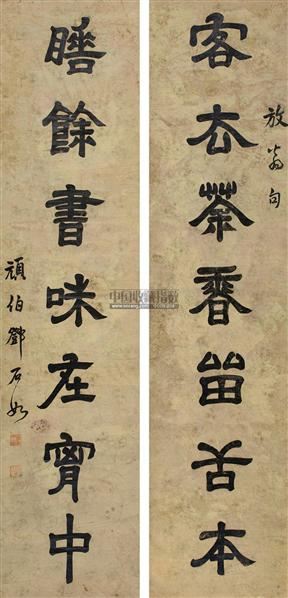 放翁句
客去茶香留舌本
睡餘書味在胷中
頑伯鄧石如
中国收藏指数